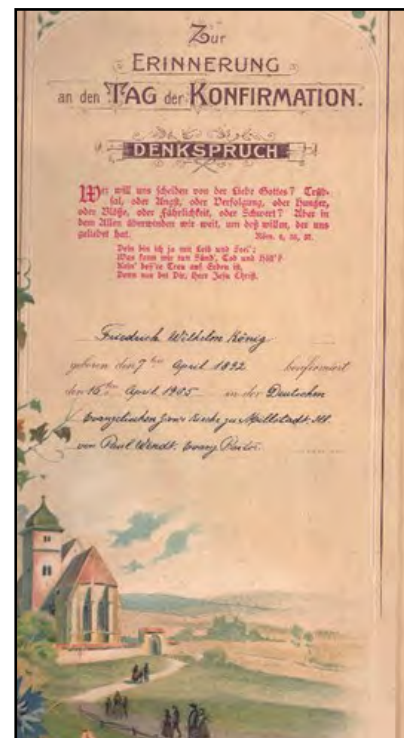 Zur
ERINNERUNG
an den TAG der KONFIRMATION.
DENKSPRUCH
Wer will uns scheiden von der Liebe Gottes? Trüb-
sal, oder Angst, oder Verfolgung, oder Hunger,
oder Blöße, oder Fährlichkeit, oder Schwert? Aber in
dem Allen überwinden wir weit, um deß willen, der uns
geliebet hat.
Röm. 8, 35, 37.
Dein bin ich ja mit Leib und Seel';
Was kann mir tun Sünd', Tod und Höll'?
Kein' bess're Treu auf Erden ist,
Denn nur bei Dir, Herr Jesu Christ.
Friedrich Wilhelm König
geboren den 7ten April 1892 konfirmiert
den 16ten April 1905 in der Deutschen
Evangelischen Kirche zu Millstadt Ill
von Paul Wendt. Evang Pastor.